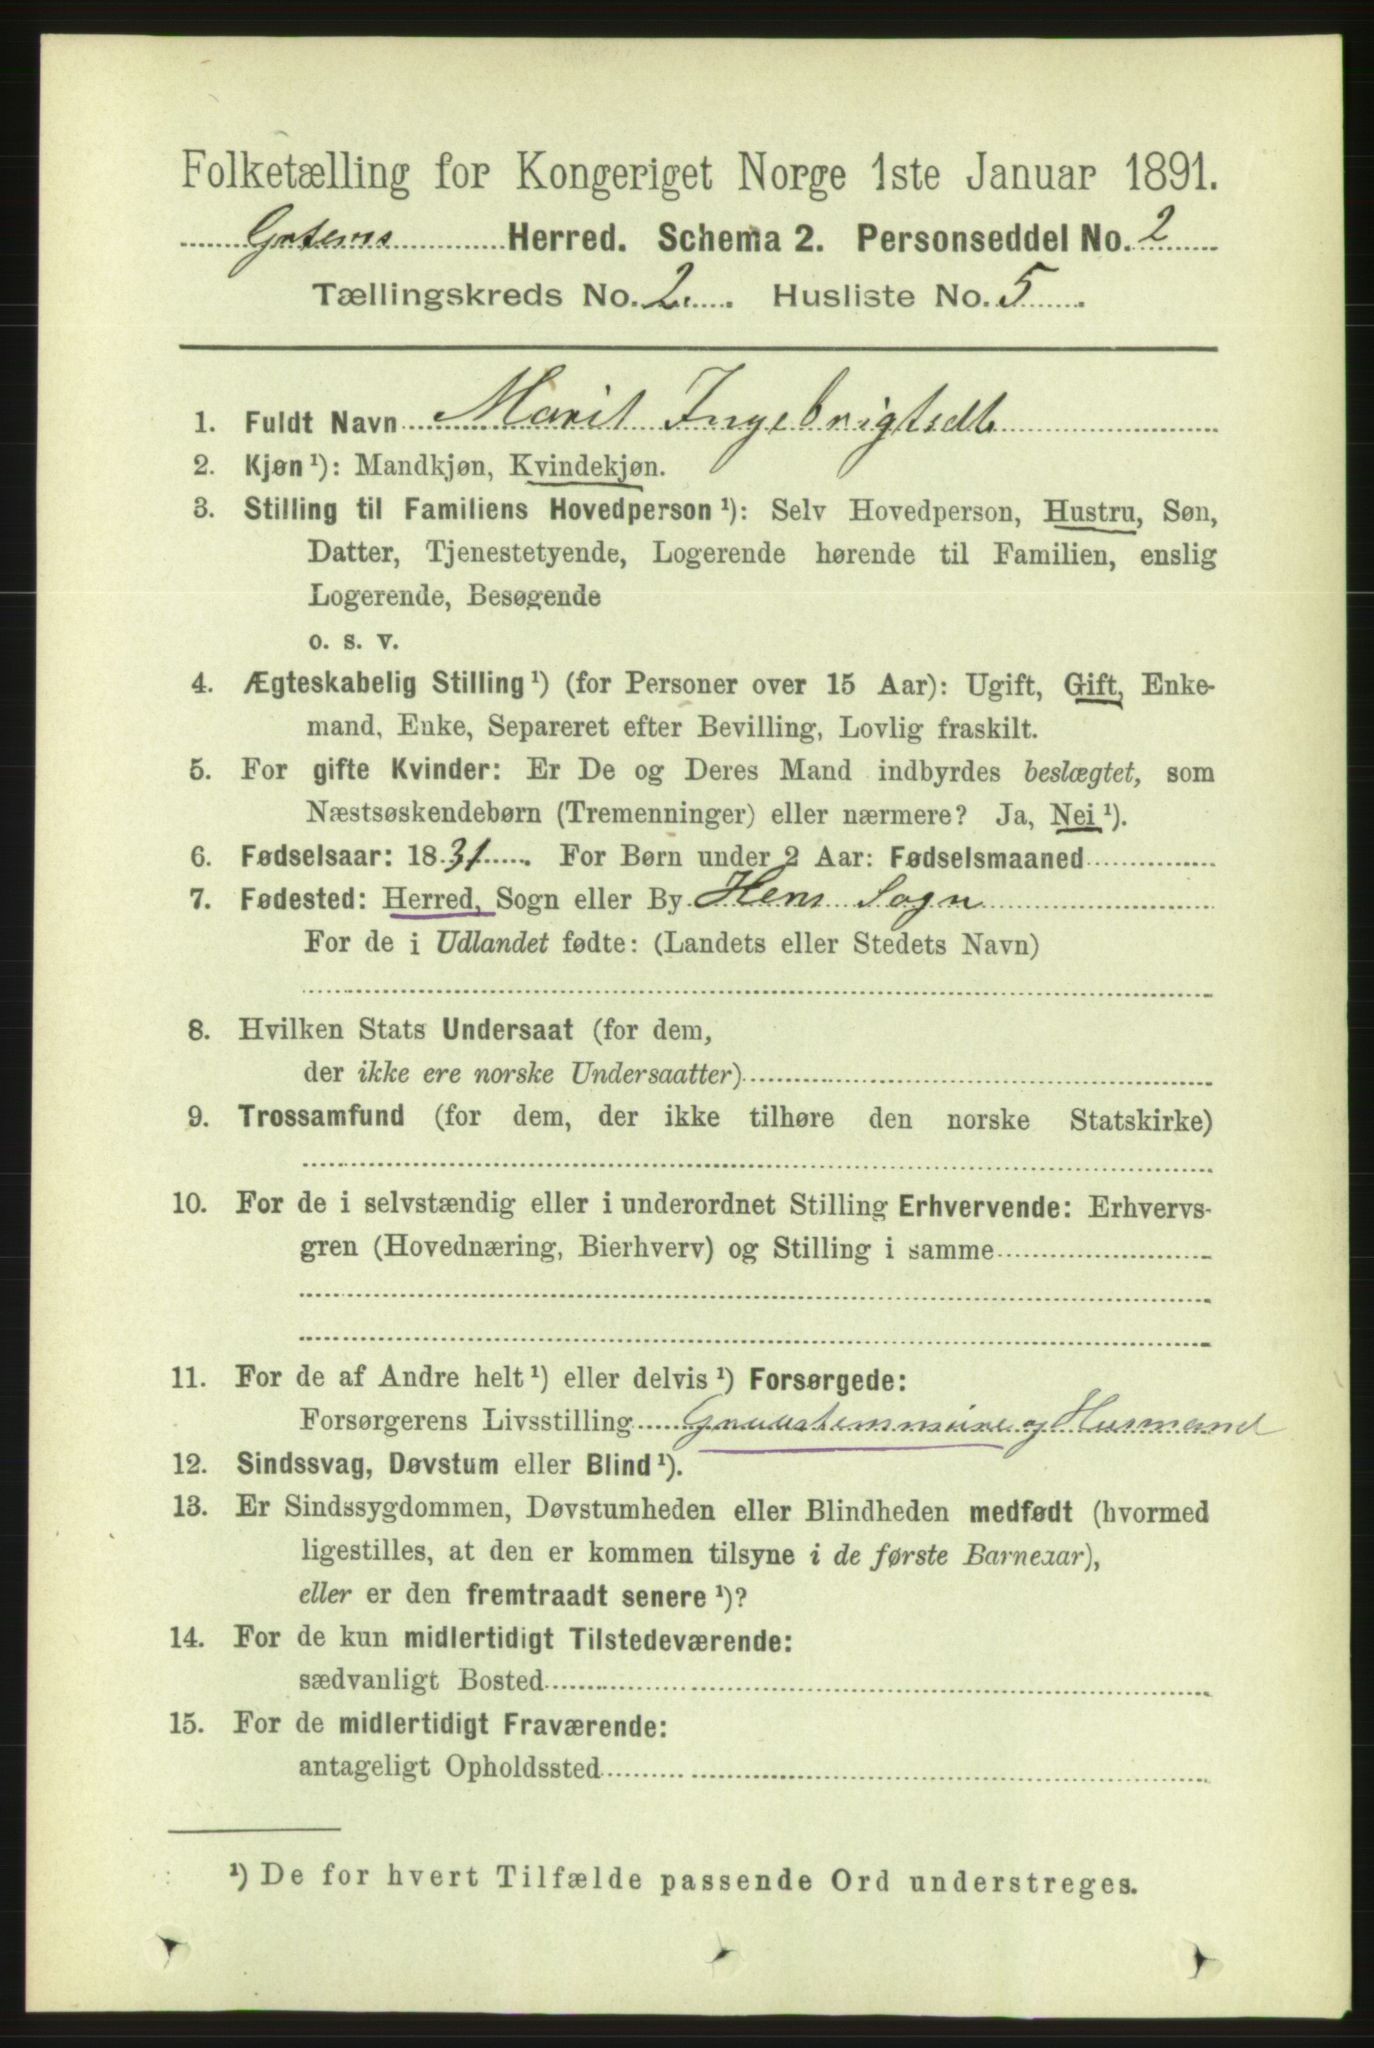 Folketælling for Kongeriget Norge 1ste Januar 1891.
Grytens Herred. Schema 2. Personseddel No. 2
Tællingskreds No. 2. Husliste No. 5
1. Fuldt Navn Marit Ingebrigtsdt
2. Kjøn¹): Mandkjøn, Kvindekjøn.
3. Stilling til Familiens Hovedperson¹): Selv Hovedperson, Hustru, Søn,
Datter, Tjenestetyende, Logerende hørende til Familien, enslig
Logerende, Besøgende
o. s. v.
4. Ægteskabelig Stilling¹) (for Personer over 15 Aar): Ugift, Gift, Enke-
mand, Enke, Separeret efter Bevilling, Lovlig fraskilt.
5. For gifte Kvinder: Er De og Deres Mand indbyrdes beslægtet, som
Næstsøskendebørn (Tremenninger) eller nærmere? Ja, Nei¹).
6. Fødselsaar: 1831. For Børn under 2 Aar: Fødselsmaaned
7. Fødested: Herred, Sogn eller By Hens Sogn
For de i Udlandet fødte: (Landets eller Stedets Navn)
8. Hvilken Stats Undersaat (for dem,
der ikke ere norske Undersaatter)
9. Trossamfund (for dem, der ikke tilhøre den norske Statskirke)
10. For de i selvstændig eller i underordnet Stilling Erhvervende: Erhvervs-
gren (Hovednæring, Bierhverv) og Stilling i samme
11. For de af Andre helt¹) eller delvis¹) Forsørgede:
Forsørgerens Livsstilling og Husmand
12. Sindssvag, Døvstum eller Blind¹).
13. Er Sindssygdommen, Døvstumheden eller Blindheden medfødt (hvormed
ligestilles, at den er kommen tilsyne i de første Barneaar),
eller er den fremtraadt senere¹)?
14. For de kun midlertidigt Tilstedeværende:
sædvanligt Bosted
15. For de midlertidigt Fraværende:
antageligt Opholdssted
¹) De for hvert Tilfælde passende Ord understreges.